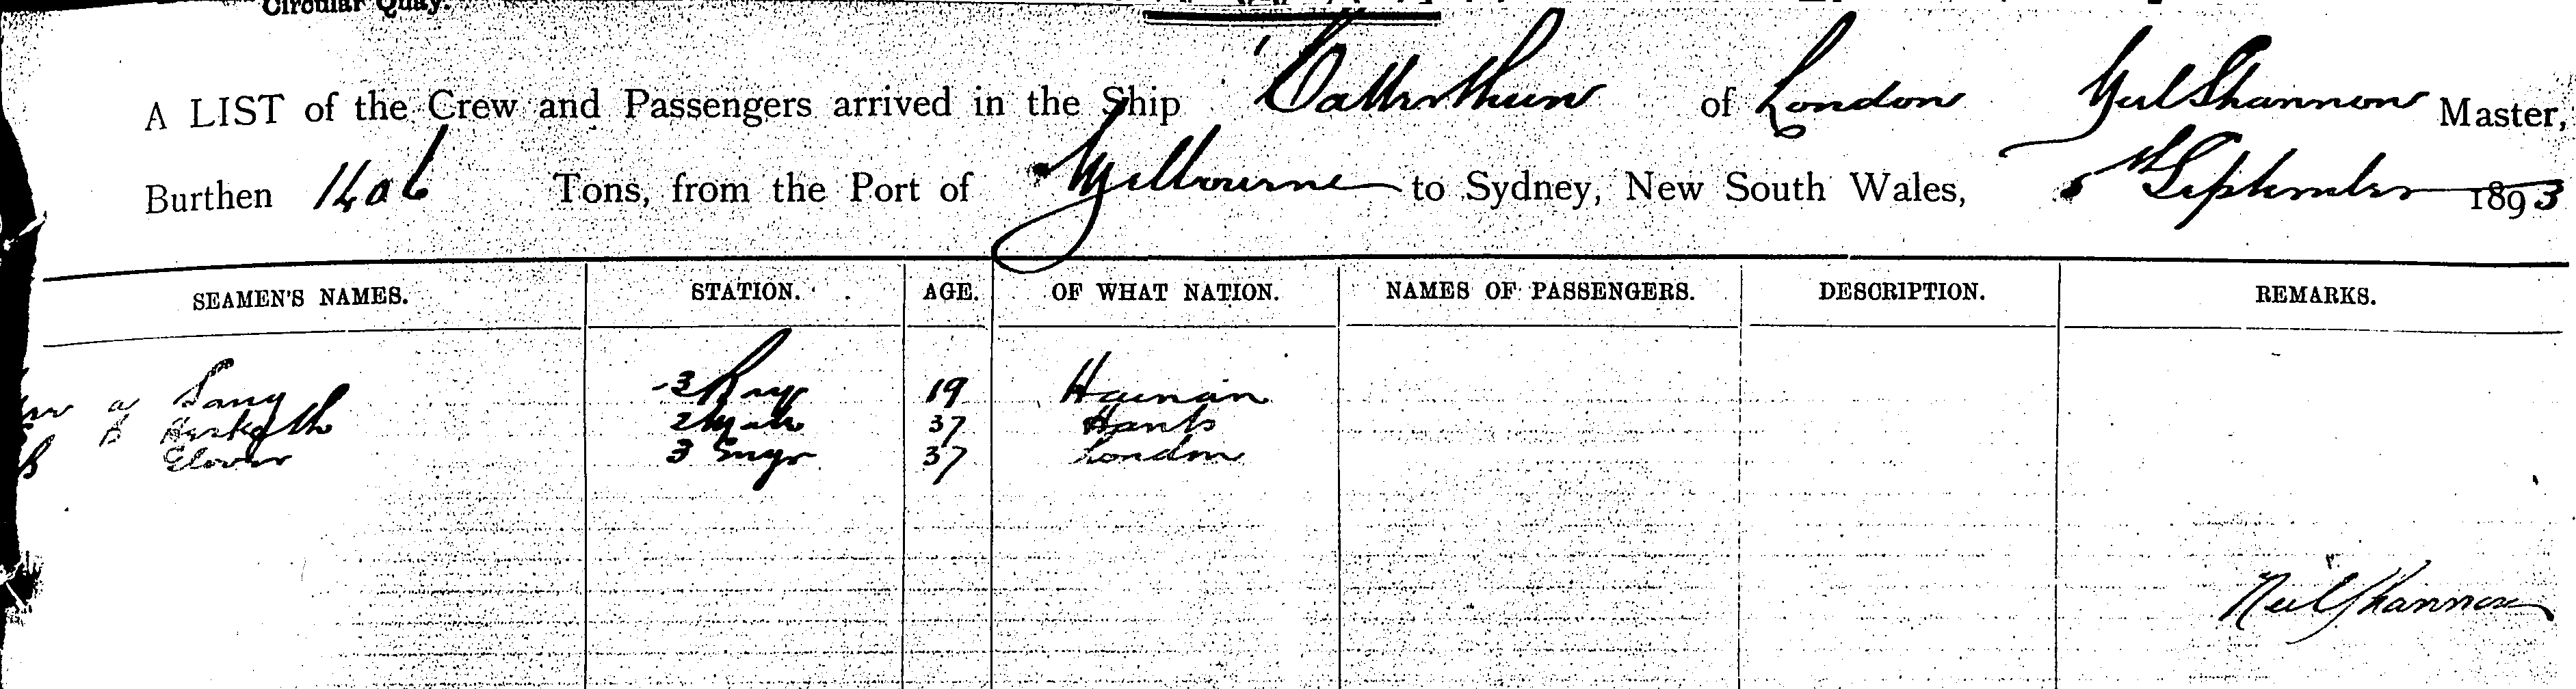 Circular Quay.
A LIST of the Crew and Passengers arrived in the Ship Catterthun of London Neil Shannon Master,
Burthen 1406 Tons, from the Port of Melbourne to Sydney, New South Wales, 5th September 1893
SEAMEN'S NAMES. STATION. AGE. OF WHAT NATION. NAMES OF PASSENGERS. DESCRIPTION. REMARKS.
Sang 3 19 Hainan
Hesketh 2 Mate 37 Hants
Elover 3 Engr 37 London
Neil Shannon